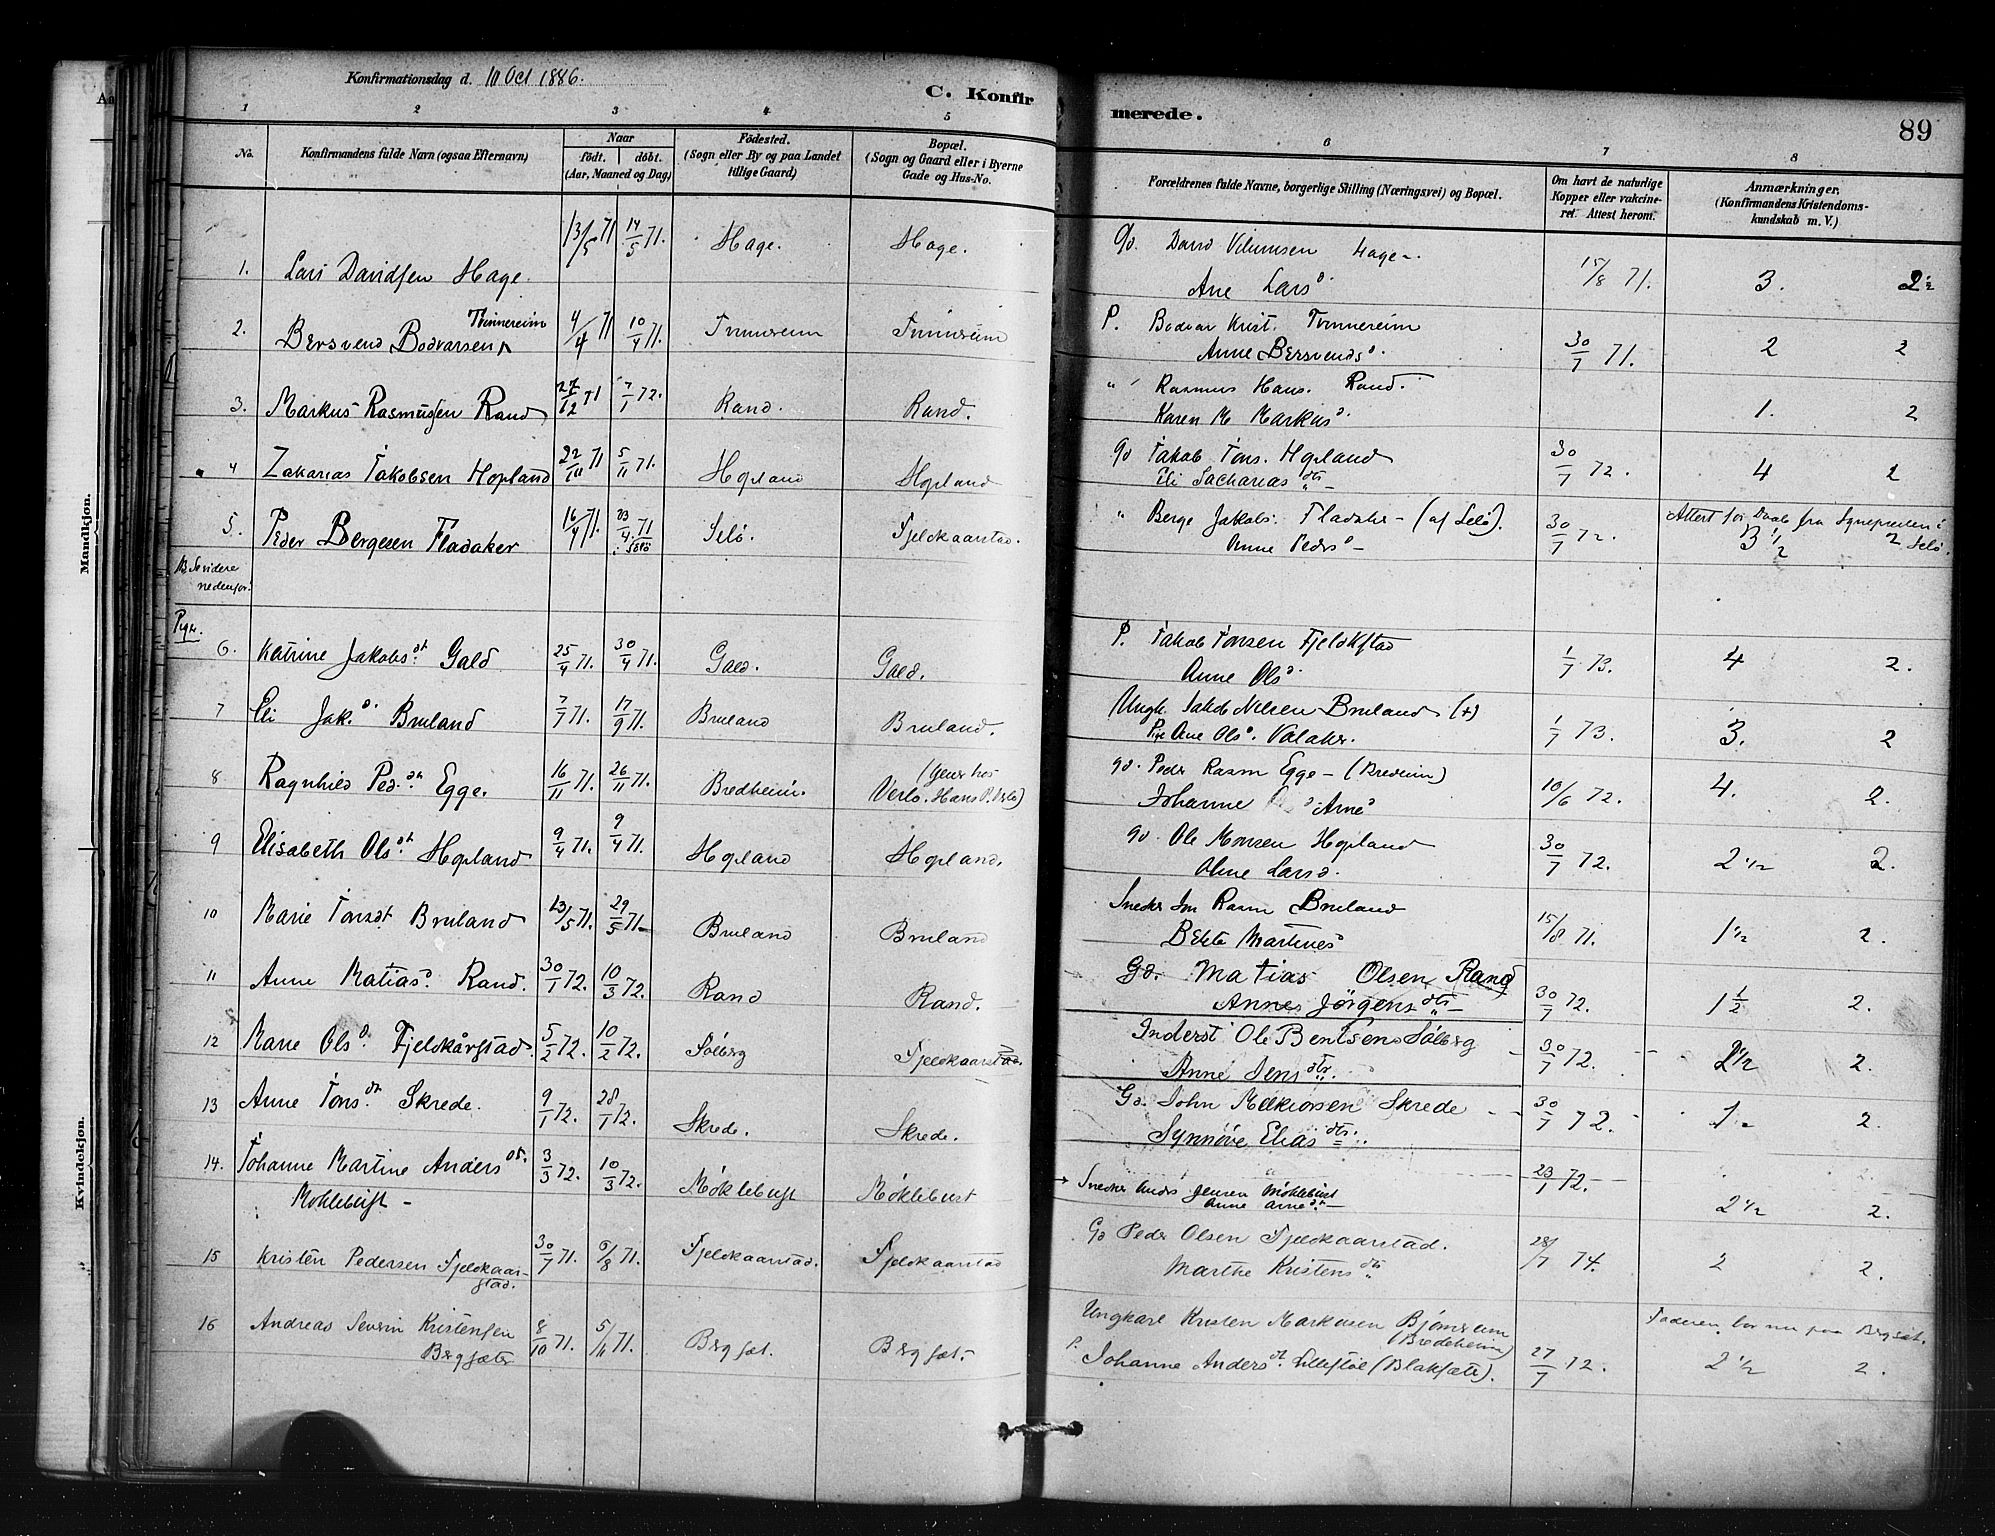 Konfirmationsdag d. 10 Oct 1886.
C. Konfir
merede.
89
1 2 3 4 5 6 7 8
No.
Konfirmandens fulde Navn (ogsaa Efternavn)
Naar
födt. döbt.
(Aar, Maaned og Dag)
Födested.
(Sogn eller By og paa Landet
tillige Gaard)
Bopæl.
(Sogn og Gaard eller i Byerne
Gade og Hus-No.
Forældrenes fulde Navne, borgerlige Stilling (Næringsvei) og Bopæl.
Om havt de naturlige
Kopper eller vakcine-
ret. Attest herom.
Anmærkninger,
(Konfirmandens Kristendoms-
kundskab m. V.)
Mandkjon.
Kvindekjon.
1. Lars Davidsen Hage. 13/5 71 14/5 71. Hage. Hage. David Hage
Ane Lars d 15/8 71. 3. 2
2. Bersvend Bodvarsen Tvinnereim 4/4 71 10/4 71. Tvinnereim Tvinnereim P. Bodvar Krist. Tvinnereim
Anne Bersvends d. 30/7 71. 2 2
3. Markus Rasmussen Rand 27/12 71 7/1 72. Rand. Rand. " Rasmus Hans. Rand.
Karen M Markus d. 1. 2
4 Zakarias Jakobsen Hopland 22/10 71 5/11 71. Hopland Hopland Jakob Jons. Hopland
Eli Sacharias dtr 30/7 72. 4 2
5. Peder Bergesen Fladaker 16/4 71. 23/4 71 Selö Selö. Fjeldkaarstad. " Berge Jakobs. Fladaker - (af Selö).
Anne Peders d - 30/7 72. Attest for Daab fra Sognepresten i Selö.
3 1/2 2
NB Se videre
nedenfor.
Piger.
6. Katrine Jakobs dt Gald 25/4 71. 30/4 71. Gald. Gald. P. Jakob Jonsen Fjeldkstad
Anne Ols d. 1/7 73. 4 2.
7 Eli Jak. d. Bruland 7/7 71. 17/9 71. Bruland Bruland. Ungk. Jakob Nilsen Bruland (+)
Pige Ane Ols d. Valaker. 1/7 73. 3. 2
8 Ragnhild Ped. dt Egge. 16/11 71. 26/11 71. Bredheim. (tjener hos
Verlo. Hans P. Verlo) Peder Rasm Egge - (Bredeim)
Johanne Arne d 10/6 72. 4. 2.
9 Elisabeth Ols dt Hopland 9/4 71. 9/4 71. Hopland Hopland. Ole Monsen Hopland
Anne Lars d. 30/7 72. 2 1/2 2.
10 Marie Jonsdt Bruland 13/5 71. 29/5 71. Bruland Bruland Sneker Jon Rasm Bruland
Martines d 15/8 71. 1 1/2 2.
11 Anne Matias d. Rand. 30/1 72. 10/3 72. Rand Rand. Gd. Matias Olsen Rand
Anne Jörgens dtr - 30/7 72. 1 1/2 2.
12 Marie Ols d. Fjeldkårstad 5/2 72. 10/2 72. Sölberg Fjeldkaarstad. Inderst Ole Bentsen Sölberg
Anne Jens dtr. 30/7 72. 2 1/2 2.
13 Anne Jons dt Skrede. 9/1 72. 28/1 72. Skrede. Skrede. Gd. John Melkiorsen Skrede
Synnöve Elias dtr. 30/7 72. 2.
14. Johanne Martine Anders dt. 3/3 72. 10/3 72. Möklebust Möklebust Sneker Anders Jensen Möklebust
Möklebust - Anne Arne dt. - 23/1 72. 2 1/2 2.
15 Kristen Pedersen Fjeldkaar-
stad. 30/7 71. 6/8 71. Fjeldkaarstad. Fjeldkaarstad Gd Peder Olsen Fjeldkaarstad.
Marthe Kristens dtr 28/7 74. 2 2.
16 Andreas Severin Kristensen
Bergsæter 8/10 71. 5/11 71. Bergsæt. Bergsæt. Ungkarl Kristen Markusen Bjørnreim
(Bredeheim) Faderen bor nu paa Bergsæt.
P. Johanne Anders dt. Lillestöl (Blaksæter). 27/7 72. 2 1/2 2.